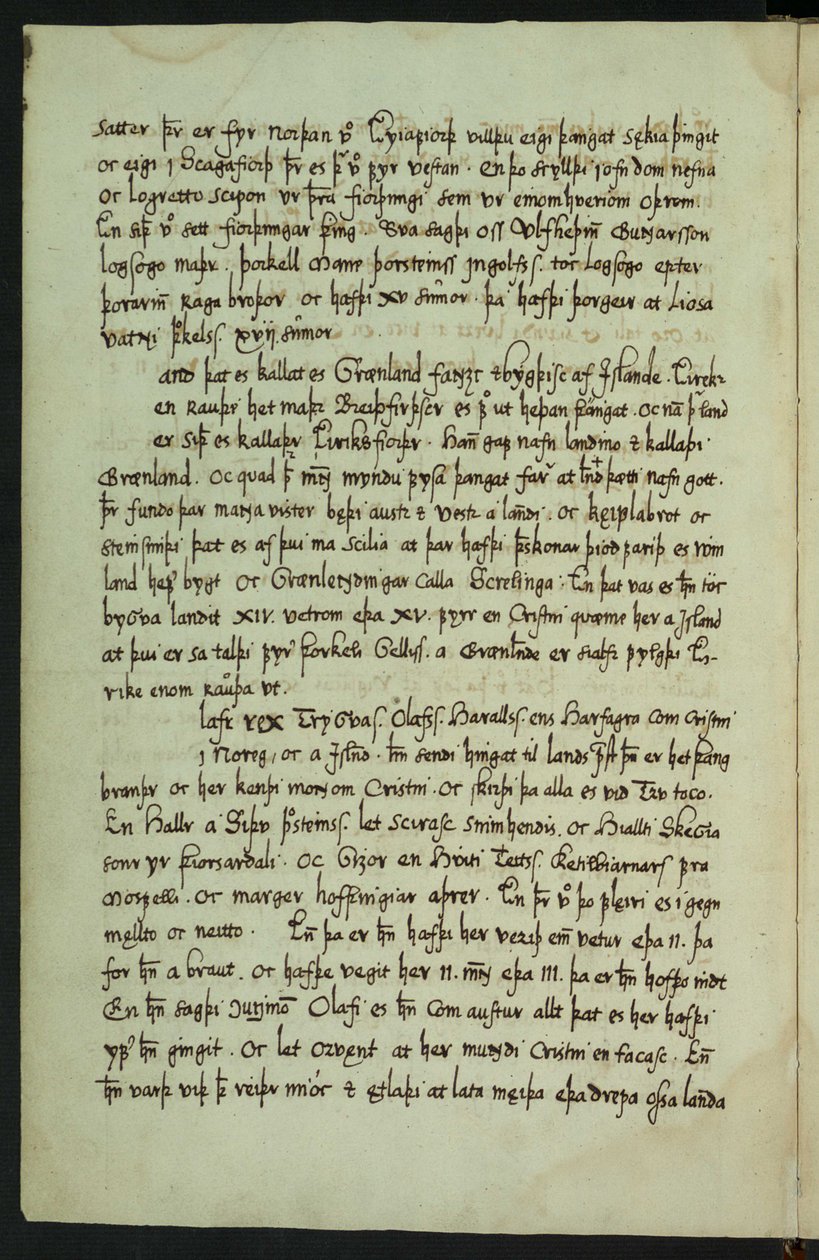 satter þr er fyr norþan vº Eyiaꝼiorþ villþu eigi þangat sękia þingit
oc eigi i Scagafiorþ þr es þr vº ꝼyr vestan · en þo scylldi iofn dom nefna
Oc logretto scipon vr þra fiorþungi sem vr einomhveriom oþrom.
En siþ vº sett fiorþungar þing . Sva sagþi oss Vlfheþiñ Gunarsson
logsogo maþr . þorkell Mane þorsteinss Ingolfs s. toc logsogo epter
þorariñ Raga broþor oc hafþi XV sumor · þa hafþi þorgeir at Liosa
vatni þkels s. XVij. sumor
and þat es kallat es Grænland fanzc ⁊ bygþisc af Islande . Eirekr
en rauþe het maþr Breiþfirþscr es ꝼº ut heþan þangat . oc nā þr land
er siþ es kallaþr Eiriksfiorþr . hañ gaꝼ nafn landino ⁊ kallaþi
Grænland . oc quad þ mñ myndu ꝼysa þangat far at lnd þætti nafn gott .
þr fundo þar manna vister bęþi austr ⁊ vestr a landi . oc kęiplabrot oc
steinsmiþi þat es af þui ma scilia at þar hafþi þskonar þiod ꝼariþ es Vin
land heꝼ bygt oc Grænlendingar calla Screlinga . En þat vas es hn toc
bygva landit XIV. vetrom eþa XV. ꝼyrr en Cristni quæme her a Island
at þui er sa talþi ꝼyr þorkeli Geliss . a Grænlnde er sialfr ꝼylgþi Ei-
rike enom rauþa vt .
lafr rex Tryggvas. Olafss. Haralls s. ens Harfagra com cristni
i Noreg, oc a Islnd . hn sendi hingat til lands pst þn er het þang
branþr oc her kenþi monnom Cristni . oc skirþi þa alla es vid Trv toco .
En Hallr a Siþv þsteinss. let scirasc snimhendis . oc Hiallti Skeggia
sonr yr þiorsardali . oc Gizor en Hviti Teitss. Ketilbiarnars ꝼra
Mosꝼelli . oc marger hofþingiar aþrer . En þr vº þo ꝼlęiri es i gegn
męllto oc neitto . En þa er hn hafþi her veriþ em vetur eþa II. þa
for hn a braut . oc hafþe vegit her II. mñ eþa III. þa er hn hofþo nidt
En hn sagþi conungmō Olafi es hn com austur allt þat es her hafþi
yꝼ hn gingit . oc let orvęnt at her mundi Cristni en facasc . En
hn varþ viþ þ reiþr mioc ⁊ ętlaþi at lata męiþa eþa drepa ossa landa